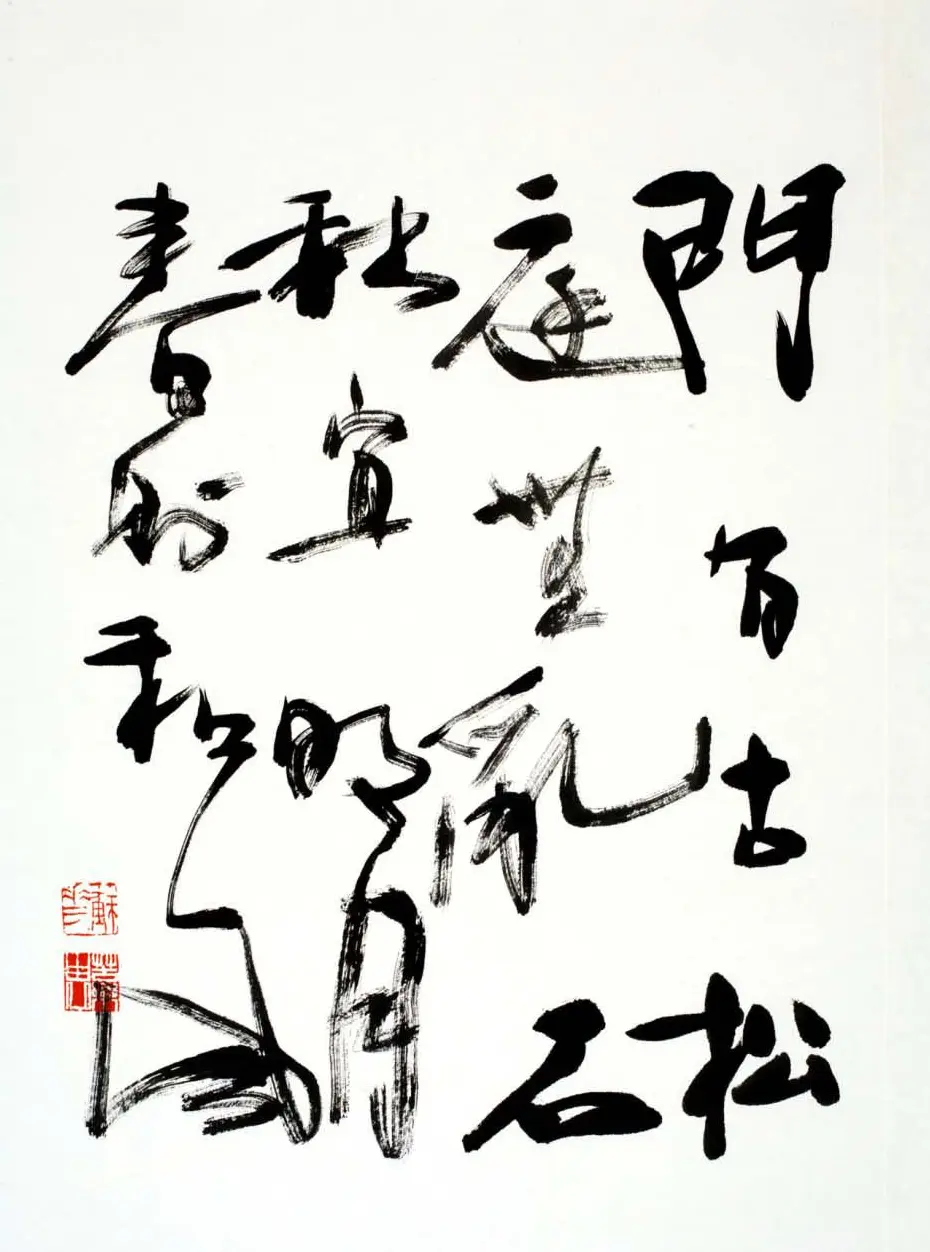 門有古松
庭無亂石
秋宜明月
春則和風